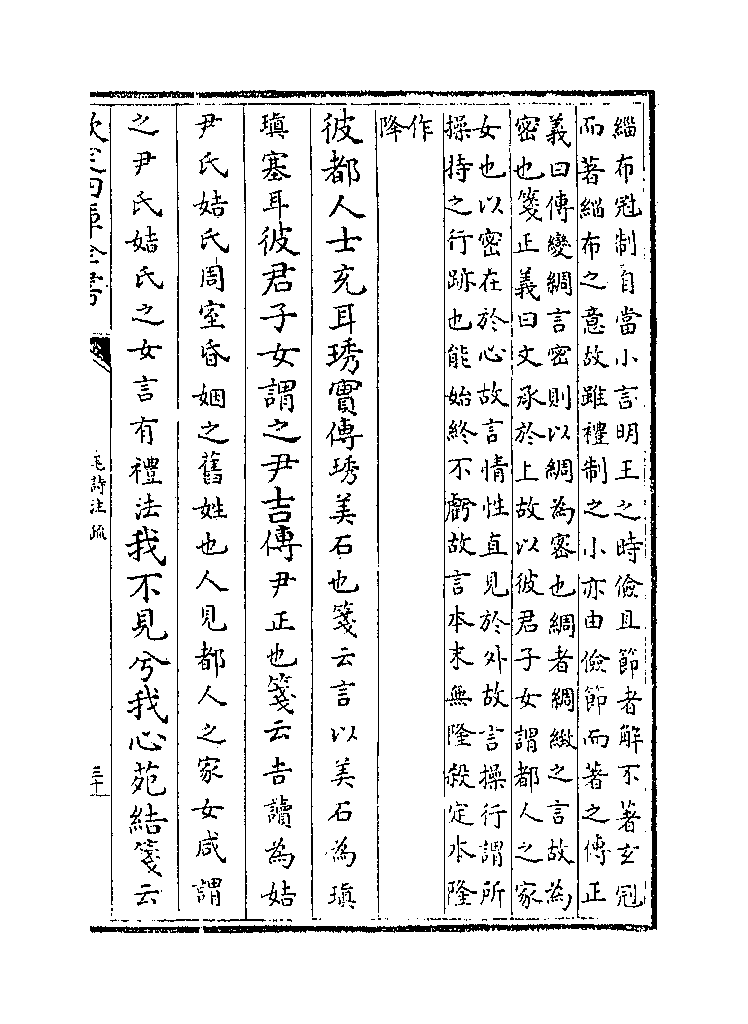 緇布冠制自當小言明王之時儉且節者解不著玄冠
而著緇布之意故雖禮制之小亦由儉節而著之傳正
義曰傳變綢言密則以綢為密也綢者綢緻之言故為
密也箋正義曰文承於上故以彼君子女謂都人之家
女也以密在於心故言情性直見於外故言操行謂所
操持之行跡也能始終不虧故言本末無隆殺定本隆
作
降
彼都人士充耳琇實傳琇美石也箋云言以美石為瑱
瑱塞耳彼君子女謂之尹吉傳尹正也箋云吉讀為姞
尹氏姞氏周室昏姻之舊姓也人見都人之家女咸謂
之尹氏姞氏之女言有禮法我不見兮我心苑結箋云
欽定四庫全書
毛詩注疏
三十